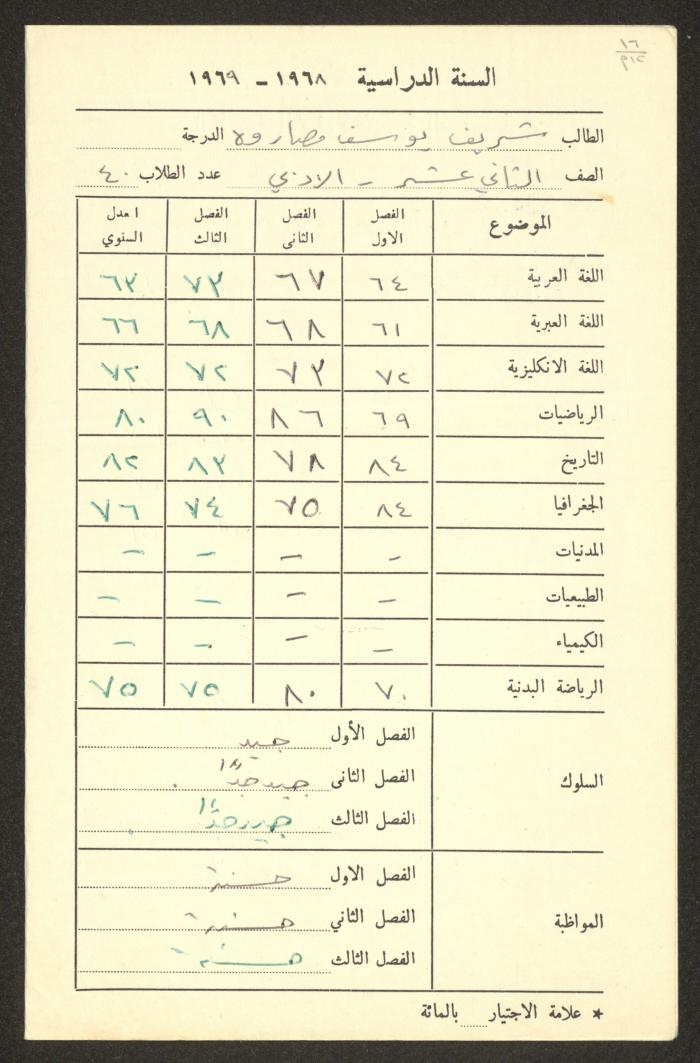 ١٦
٣١٢
السنة الدراسية ١٩٦٨ – ١٩٦٩
الطالب شريف يوسف مصاروه الدرجة
الصف الثاني عشر - الادبي عدد الطلاب ٤٠
الموضوع الفصل الاول الفصل الثانى الفصل الثالث المعدل السنوي
اللغة العربية ٦٤ ٦٧ ٧٣ ٦٣
اللغة العبرية ٦١ ٦٨ ٦٨ ٦٦
اللغة الانكليزية ٧٢ ٧٣ ٧٢ ٧٢
الرياضيات ٦٩ ٨٦ ٩٠ ٨٠
التاريخ ٨٤ ٧٨ ٨٣ ٨٢
الجغرافيا ٨٤ ٧٥ ٧٤ ٧٦
المدنيات – – – –
الطبيعيات – – – –
الكيمياء – – – –
الرياضة البدنية ٧٠ ٨٠ ٧٥ ٧٥
السلوك
الفصل الأول جيد
الفصل الثانى جيد جدًا
الفصل الثالث جيد جدًا
المواظبة
الفصل الاول حسنة
الفصل الثاني حسنة
الفصل الثالث حسنة
* علامة الاجتياز بالمائة